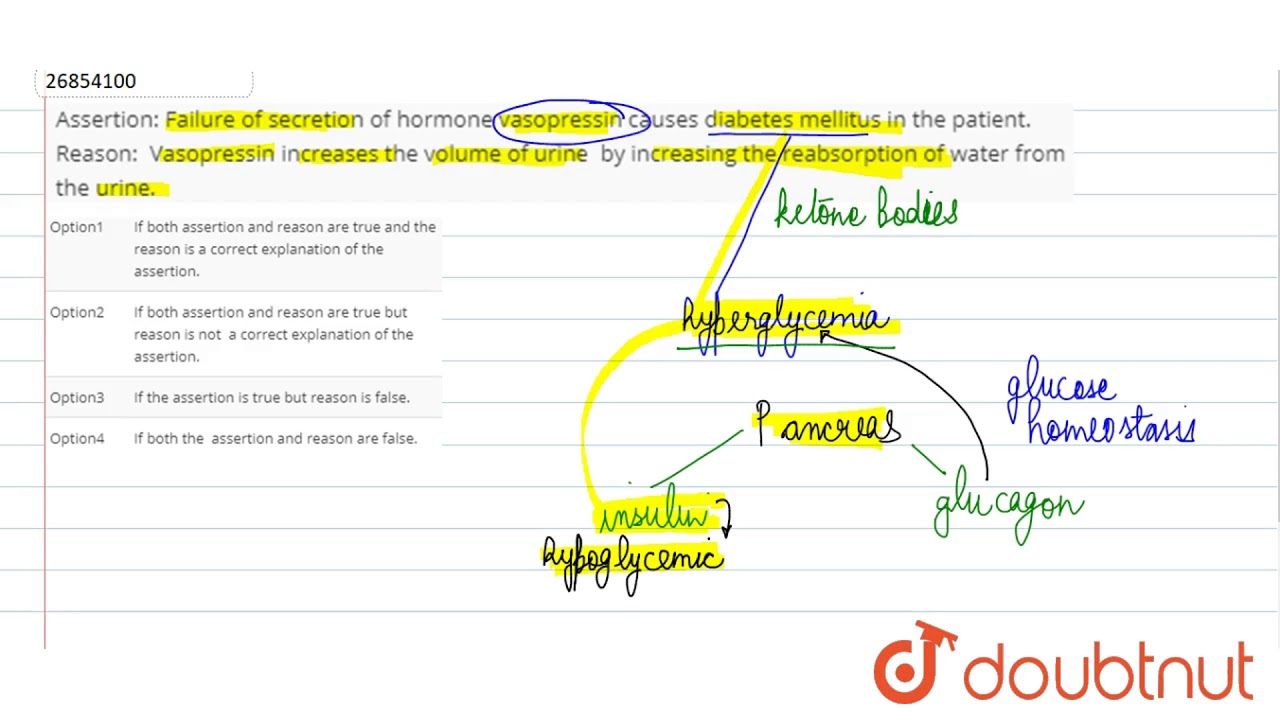 26854100
Assertion: Failure of secretion of hormone vasopressin causes diabetes mellitus in the patient.
Reason: Vasopressin increases the volume of urine by increasing the reabsorption of water from
the urine.
Option1 If both assertion and reason are true and the
reason is a correct explanation of the
assertion.
Option2 If both assertion and reason are true but
reason is not a correct explanation of the
assertion.
Option3 If the assertion is true but reason is false.
Option4 If both the assertion and reason are false.
ketone bodies
hyperglycemia
glucose
homeostasis
Pancreas
insulin
glucagon
hypoglycemic
doubtnut